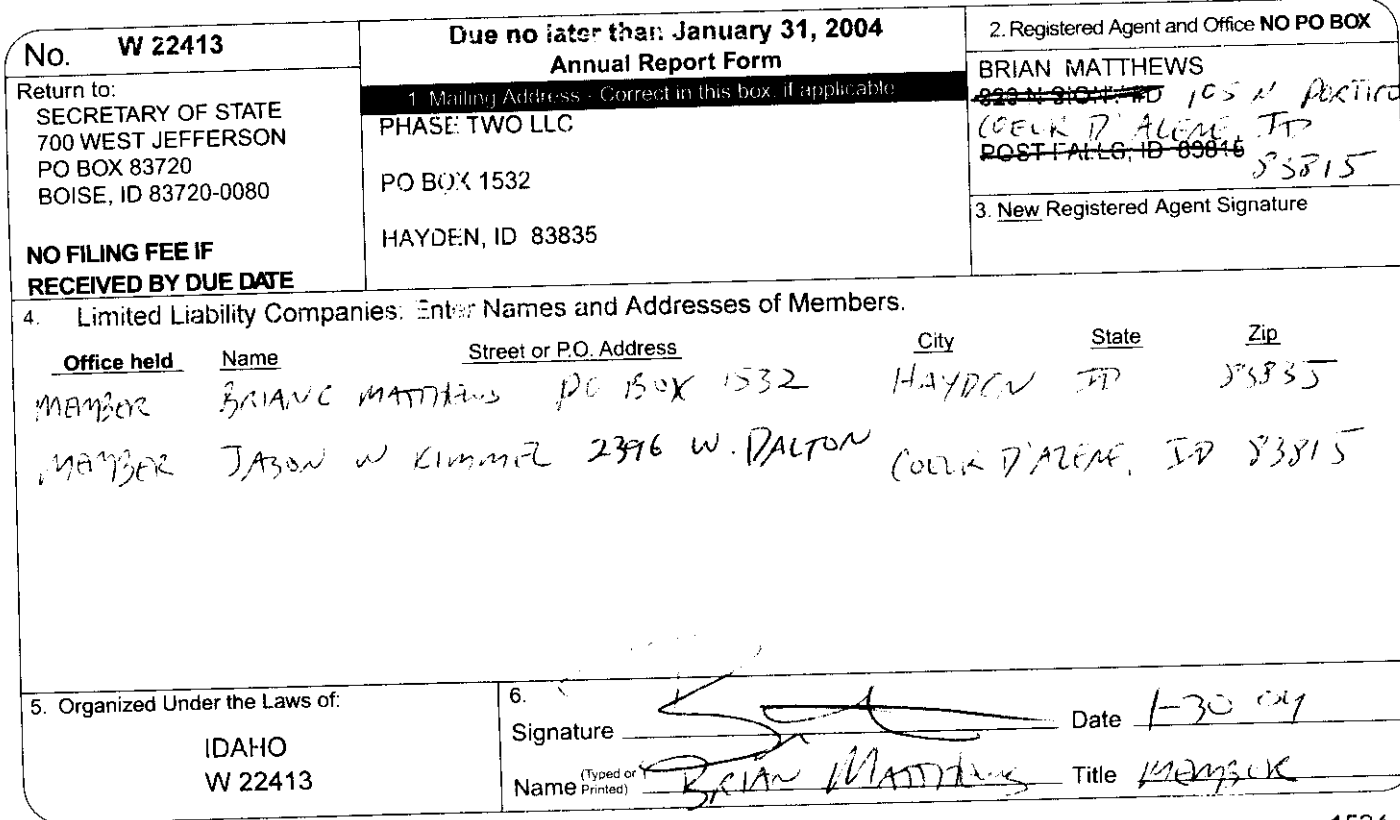 No. W 22413
Return to:
SECRETARY OF STATE
700 WEST JEFFERSON
PO BOX 83720
BOISE, ID 83720-0080
NO FILING FEE IF
RECEIVED BY DUE DATE
Due no later than January 31, 2004
Annual Report Form
1. Mailing Address - Correct in this box, if applicable
PHASE TWO LLC
PO BOX 1532
HAYDEN, ID 83835
2. Registered Agent and Office NO PO BOX
BRIAN MATTHEWS
105 N PORTICO
COEUR D'ALENE, ID
POST FALLS, ID
83815
3. New Registered Agent Signature
4. Limited Liability Companies: Enter Names and Addresses of Members.
Office held Name Street or P.O. Address City State Zip
MEMBER BRIAN C MATTHEWS PO BOX 1532 HAYDEN ID 83835
MEMBER JASON W KIMMEL 2396 W. DALTON COEUR D'ALENE, ID 83815
5. Organized Under the Laws of:
IDAHO
W 22413
6.
Signature Date 1-30 04
Name (Typed or Printed) BRIAN MATTHEWS Title MEMBER